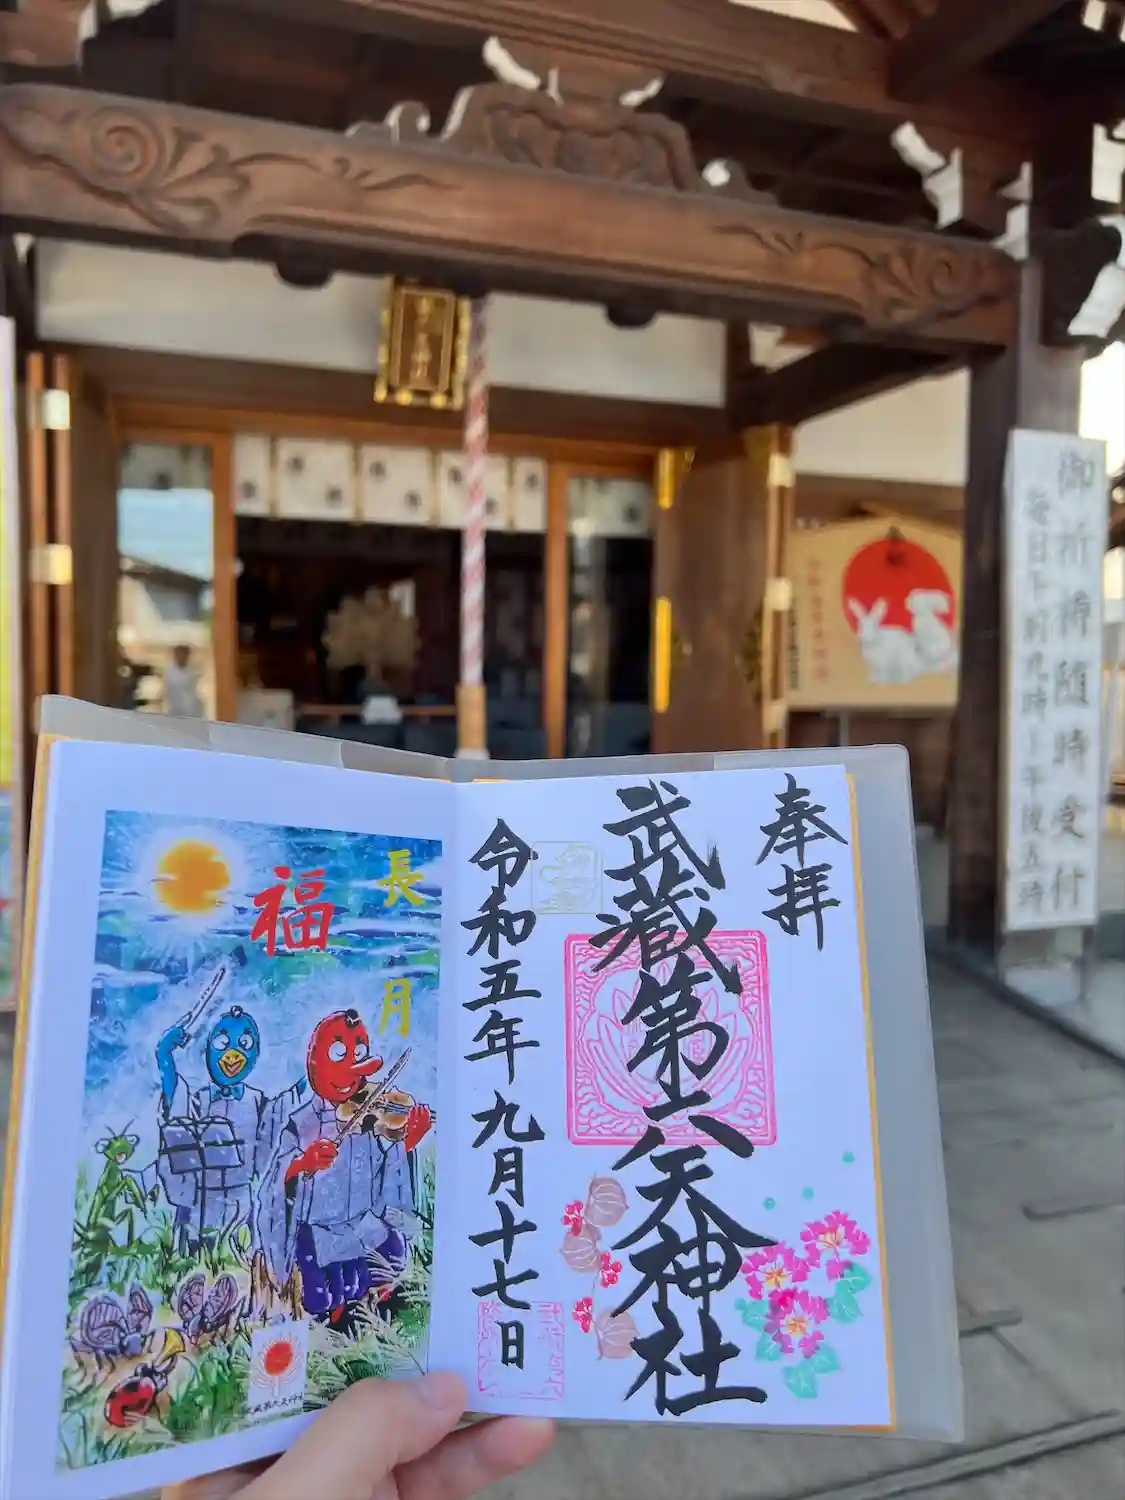 奉拝
武蔵第六天神社
令和五年九月十七日
長月
福
御祈祷随時受付
毎日午前九時〜午後五時